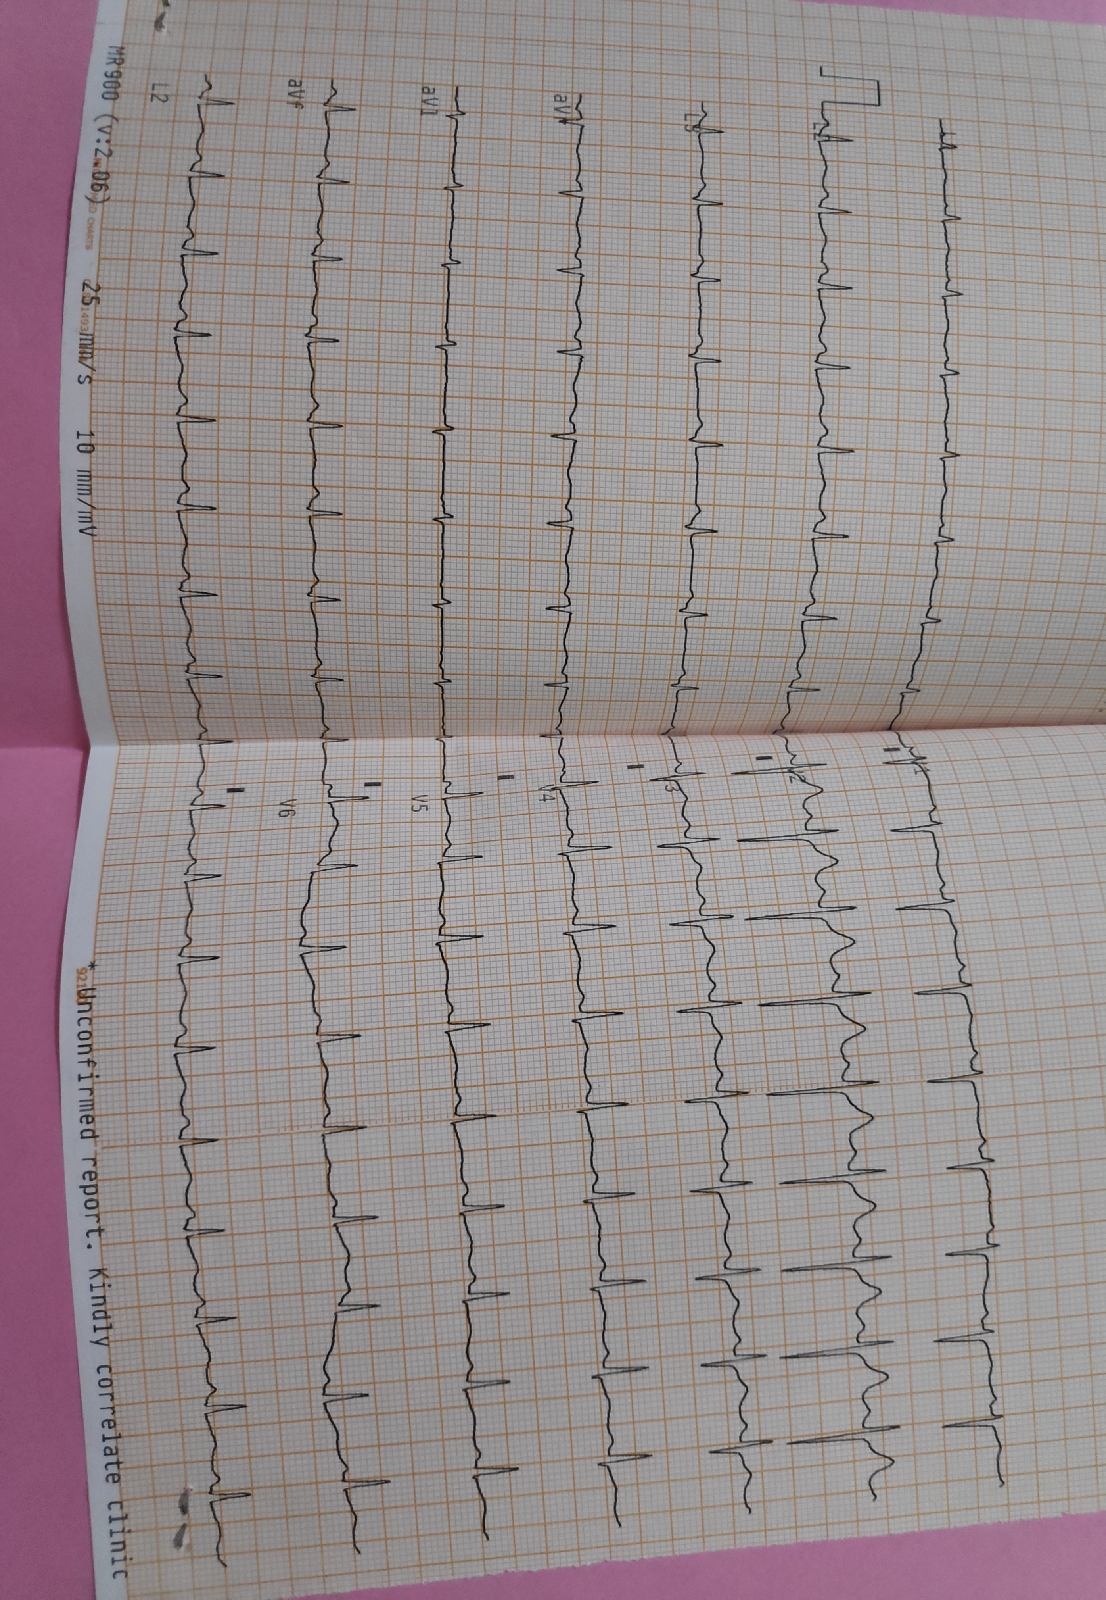 L2
L3
aVR
aVl
aVf
L2
V1
V2
V3
V4
V5
V6
MR900 (v:2.06) 25 mm/s 10 mm/mV
* Unconfirmed report. Kindly correlate clinic